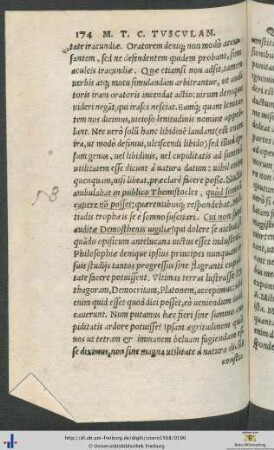 174 M. T. C. TVSCVLAN.
tate iracundiæ. Oratorem deniq; non modò accu-
santem, sed ne defendentem quidem probant, sine
aculeis iracundiæ. Quæ etiamsi non adsit, tamen
verbis atq; motu simulandam arbitrantur, ut audi-
toris iram oratoris incendat actio: uirum deniq;
videri negāt, qui irasci nesciat. Eamq; quam lenitatem
nos dicimus, uitioso lenitudinis nomine appel-
lant. Nec verò solū hanc libidinē laudant (est
ira, ut modò definiui, ulciscendi libido) sed
genus, uel libidinis, uel cupiditatis ad summam
utilitatem esse dicunt à natura datum: nihil enim
quenquam, nisi libeat, præclarè facere posse. Noctu
ambulabat in publico Themistocles, quòd somnū
capere nō posset: quærentibusq; respondebat, Mil-
tiadis trophæis se è somno suscitari. Cui non sunt
auditæ Demosthenis vigiliæ? qui dolere se aiebat, si
quādo opificum antelucana uictus esset industria.
Philosophiæ deniq; ipsius principes nunquam in
suis studijs tantos progressus sine flagranti cupidi-
tate facere potuissent. Vltimas terras lustrasse Py-
thagoram, Democritum, Platonem, accepimus. Vbi
enim quid esset quod disci posset, eò ueniendum iudi-
cauerunt. Num putamus hæc fieri sine summo cu-
piditatis ardore potuisse? Ipsam ægritudinem quam
nos ut tetram & immanem beluam fugiendam es-
se diximus, non sine magna utilitate à natura dicūt
constitu
http://dl.ub.uni-freiburg.de/diglit/cicero1568/0190
© Universitätsbibliothek Freiburg
Baden-Württemberg